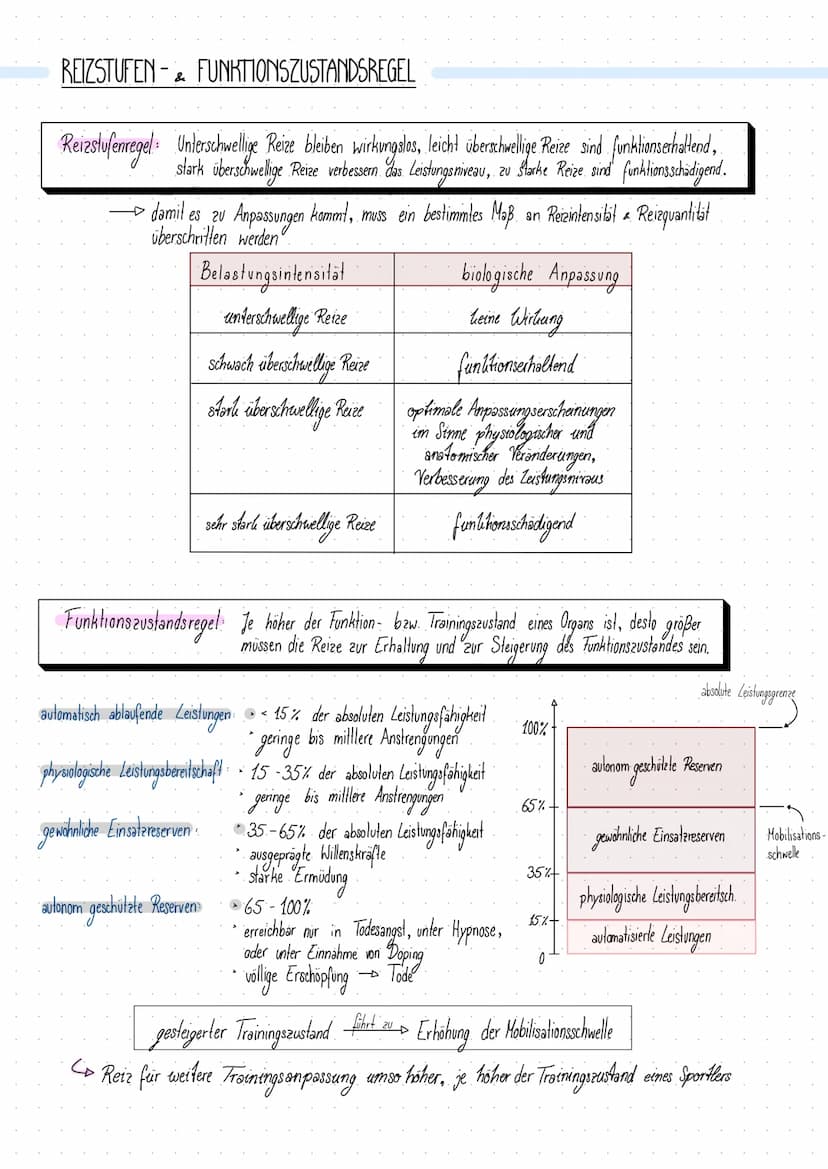 REIZSTUFEN- & FUNKTIONSZUSTANDSREGEL
Reizstufenregel: Unterschwellige Reize bleiben wirkungslos, leicht überschwellige Reize sind funktionserhaltend,
stark überschwellige Reize verbessern das Leistungsniveau, zu starke Reize sind funktionsschädigend.
→ damit es zu Anpassungen kommt, muss ein bestimmtes Maß an Reizintensität & Reizquantität
überschritten werden
Belastungsintensität biologische Anpassung
unterschwellige Reize keine Wirkung
schwach überschwellige Reize funktionserhaltend
stark überschwellige Reize optimale Anpassungserscheinungen
im Sinne physiologischer und
anatomischer Veränderungen,
Verbesserung des Leistungsniveaus
sehr stark überschwellige Reize funktionsschädigend
Funktionszustandsregel: Je höher der Funktion- bzw. Trainingszustand eines Organs ist, desto größer
müssen die Reize zur Erhaltung und zur Steigerung des Funktionszustandes sein.
automatisch ablaufende Leistungen: • < 15% der absoluten Leistungsfähigkeit
• geringe bis mittlere Anstrengungen
physiologische Leistungsbereitschaft: • 15-35% der absoluten Leistungsfähigkeit
• geringe bis mittlere Anstrengungen
gewöhnliche Einsatzreserven: • 35-65% der absoluten Leistungsfähigkeit
• ausgeprägte Willenskräfte
• starke Ermüdung
autonom geschützte Reserven: • 65-100%
• erreichbar nur in Todesangst, unter Hypnose,
oder unter Einnahme von Doping
• völlige Erschöpfung → Tode
absolute Leistungsgrenze
100%
autonom geschützte Reserven
65%
gewöhnliche Einsatzreserven
Mobilisations-
schwelle
35%
physiologische Leistungsbereitsch.
15%
automatisierte Leistungen
0
gesteigerter Trainingszustand führt zu → Erhöhung der Mobilisationsschwelle
↳ Reiz für weitere Trainingsanpassung umso höher, je höher der Trainingszustand eines Sportlers